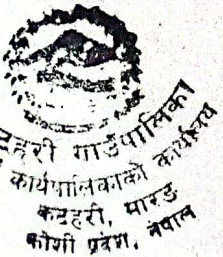 कटहरी गाउँपालिका
कार्यपालिकाको कार्यालय
कटहरी, मोरङ
कोशी प्रदेश, नेपाल